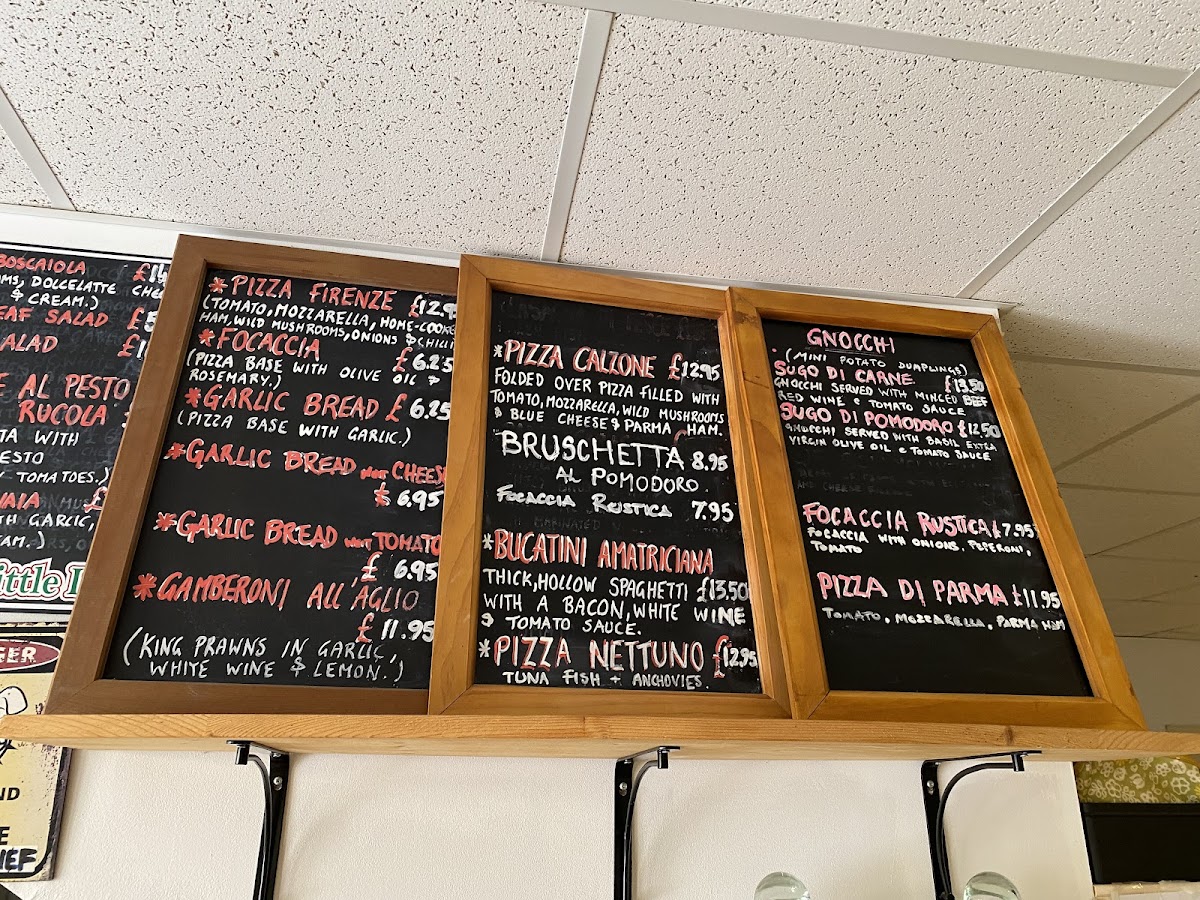 BOSCAIOLA £1
MS, DOLCELATTE CHEE
& CREAM.)
EAF SALAD £5
ALAD £1
E AL PESTO
RUCOLA
TA WITH
ESTO
TOMATOES.)
NAIA £
WITH GARLIC,
EAM.)
ittle I
GER
ND
E
IEF
*PIZZA FIRENZE £12.9
(TOMATO, MOZZARELLA, HOME-COOKE
HAM, WILD MUSHROOMS, ONIONS & CHILLI
*FOCACCIA £6.25
(PIZZA BASE WITH OLIVE OIL &
ROSEMARY.)
*GARLIC BREAD £6.25
(PIZZA BASE WITH GARLIC.)
*GARLIC BREAD WITH CHEESE
£6.95
*GARLIC BREAD WITH TOMATO
£6.95
*GAMBERONI ALL'AGLIO
£11.95
(KING PRAWNS IN GARLIC,
WHITE WINE & LEMON.)
*PIZZA CALZONE £12.95
FOLDED OVER PIZZA FILLED WITH
TOMATO, MOZZARELLA, WILD MUSHROOMS
& BLUE CHEESE & PARMA HAM.
BRUSCHETTA 8.95
AL POMODORO.
FOCACCIA RUSTICA 7.95
*BUCATINI AMATRICIANA
THICK, HOLLOW SPAGHETTI £13.50
WITH A BACON, WHITE WINE
& TOMATO SAUCE.
*PIZZA NETTUNO £12.95
TUNA FISH + ANCHOVIES.
GNOCCHI
(MINI POTATO DUMPLINGS)
SUGO DI CARNE £13.50
GNOCCHI SERVED WITH MINCED BEEF
RED WINE & TOMATO SAUCE
SUGO DI POMODORO £12.50
GNOCCHI SERVED WITH BASIL EXTRA
VIRGIN OLIVE OIL & TOMATO SAUCE
FOCACCIA RUSTICA £7.95
FOCACCIA WITH ONIONS, PEPERONI,
TOMATO
PIZZA DI PARMA £11.95
TOMATO, MOZZARELLA, PARMA HAM